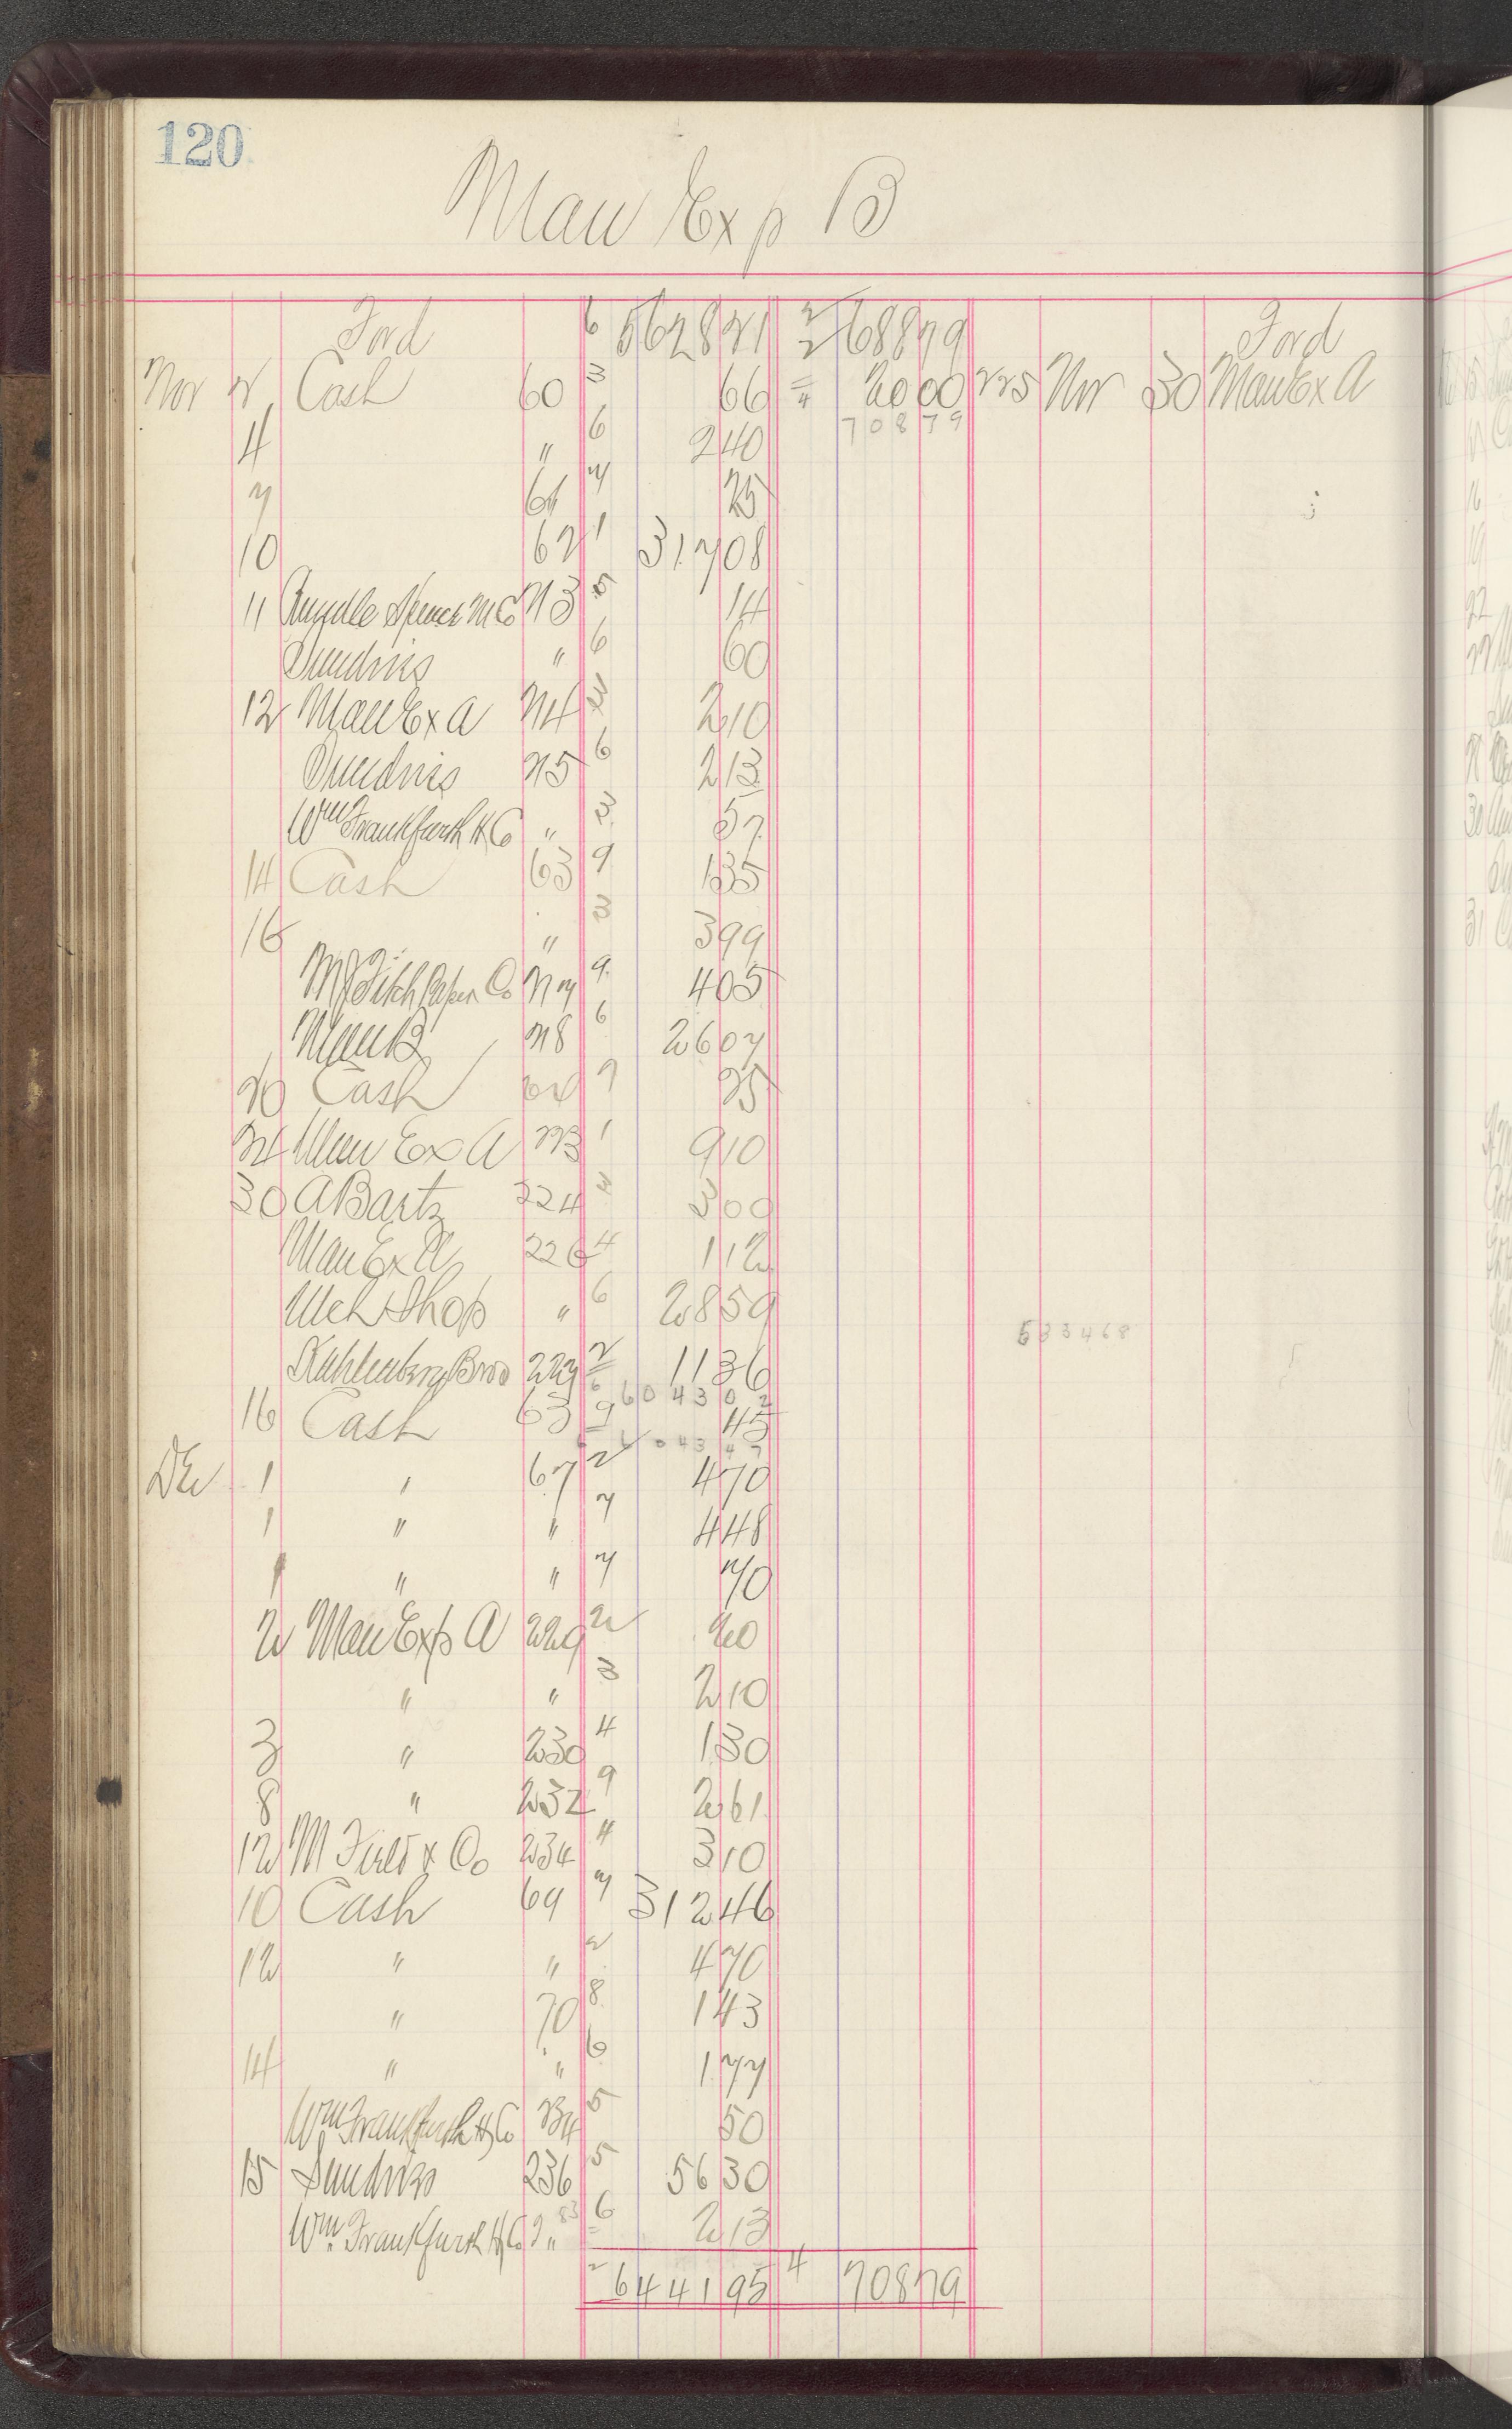 120
Man Exp B
Ford 6 5628 21 2/2 688 79 Ford
Nov 2 Cash 60 3 66 4 20 00 225 Nov 30 Man Ex A
4 " 6 2 40 708 79
7 61 7 25
10 62 1 317 08
11 Rundle Spence M Co 213 5 14
Sundries " 6 60
12 Man Ex A 214 3 2 10
Sundries 215 6 2 13
Wm Frankfurth H Co " 3 57
14 Cash 63 9 1 35
16 " 3 3 99
M J Fitch Paper Co 217 9 4 05
Man B 218 6 26 07
20 Cash 64 7 25
24 Man Ex A 223 1 9 10
30 A Bartz 224 3 3 00
Man Ex A 226 4 1 12
Mch Shop " 6 28 59
533468
Kahlenberg Bros 227 2 11 36
6 6043 02
16 Cash 63 9 45
6 6043 47
De 1 " 67 2 4 70
1 " " 7 4 48
1 " " 7 70
2 Man Exp A 229 2 20
" " 3 2 10
3 " 230 4 1 30
8 " 232 9 2 61
12 M Field & Co 234 4 3 10
10 Cash 69 7 312 46
12 " " 2 4 70
" 70 8 1 43
14 " " 6 1 77
Wm Frankfurth H Co 234 5 50
15 Sundries 236 5 56 30
Wm Frankfurth H Co " 83 6 2 13
2 6441 95 4 708 79